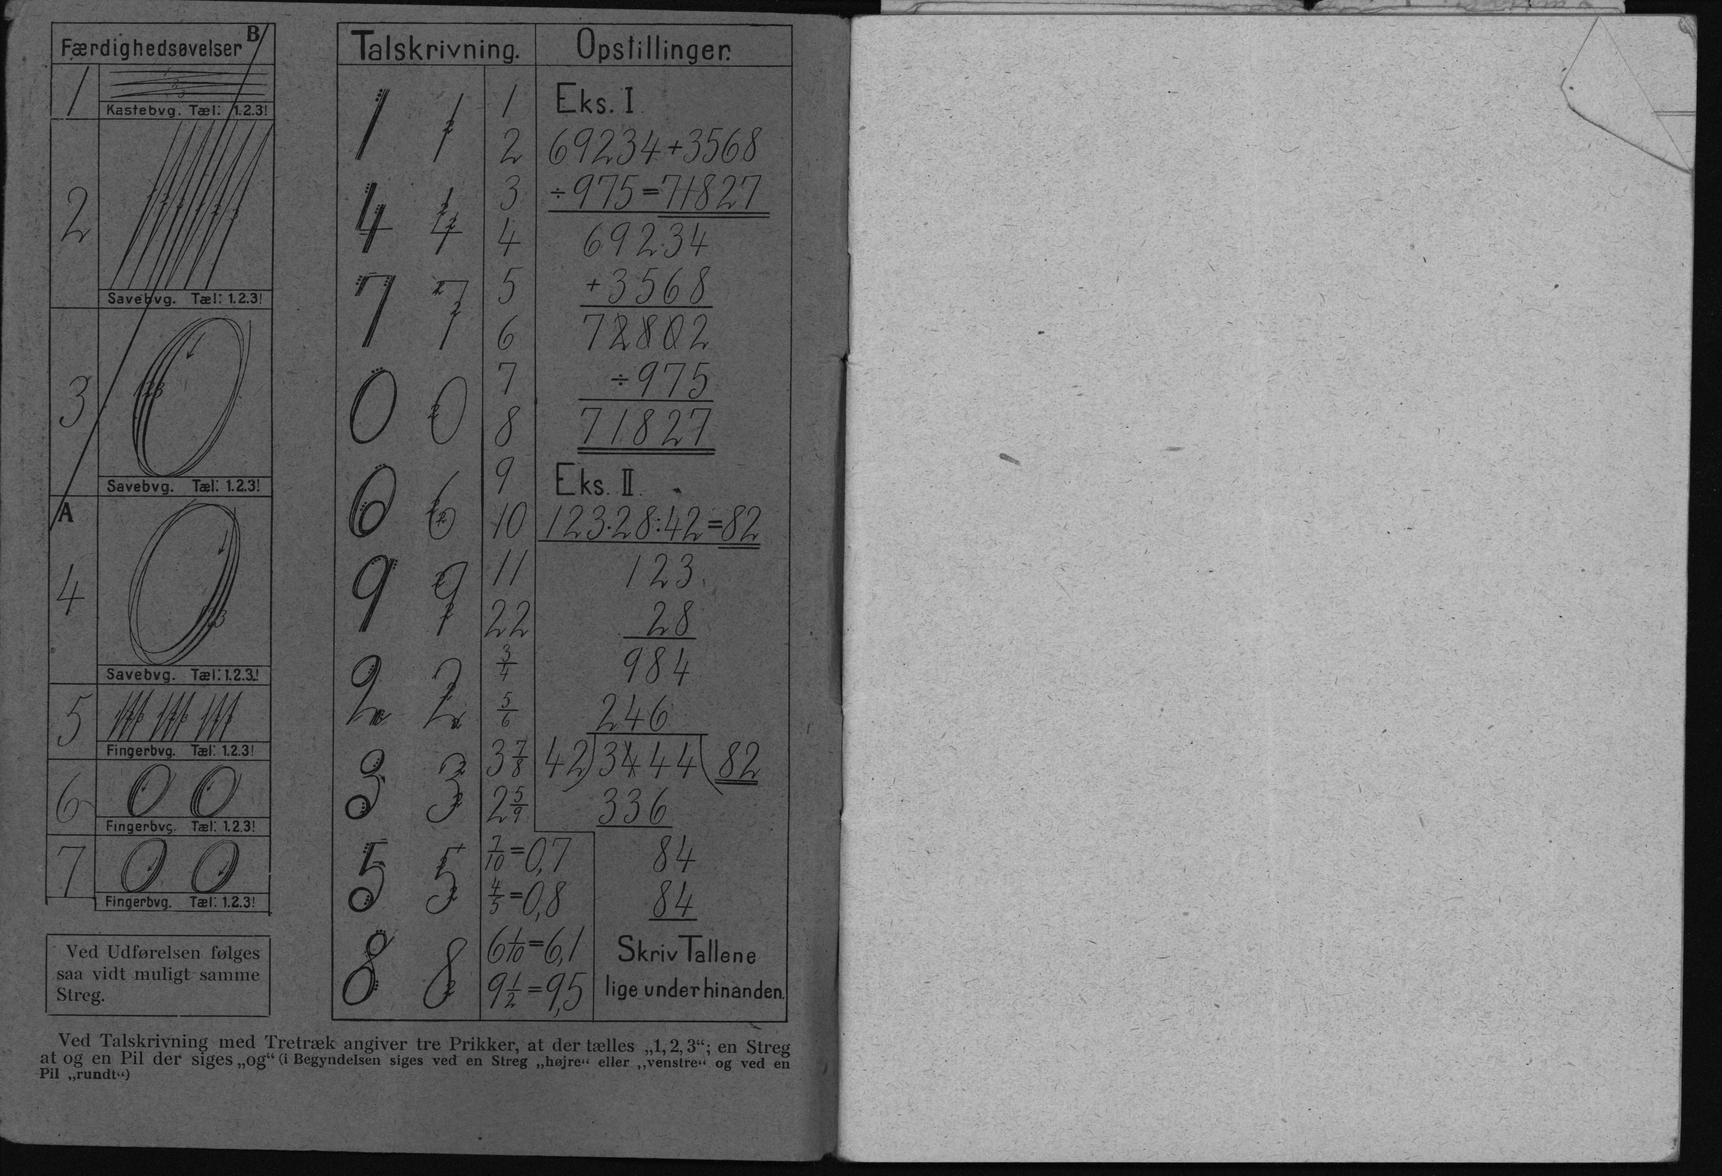 Færdighedsøvelser
B
1
Kastebvg. Tæl: 1.2.3!
2
Savebvg. Tæl: 1.2.3!
3
123
Savebvg. Tæl: 1.2.3!
A
4
Savebvg. Tæl: 1.2.3!
5
Fingerbvg. Tæl: 1.2.3!
6
Fingerbvg. Tæl: 1.2.3!
7
Fingerbvg. Tæl: 1.2.3!
Ved Udførelsen følges
saa vidt muligt samme
Streg.
Talskrivning.
1 1
4 4
7 7
0 0
6 6
9 9
2 2
3 3
5 5
8 8
1
2
3
4
5
6
7
8
9
10
11
22
3/4
5/6
3 7/8
2 5/9
7/10=0,7
4/5=0,8
6 1/10=6,1
9 1/2=9,5
Opstillinger.
Eks. I.
69234+3568
÷975=71827
69234
+3568
72802
÷975
71827
Eks. II.
123·28:42=82
123
28
984
246
42)3444(82
336
84
84
Skriv Tallene
lige under hinanden.
Ved Talskrivning med Tretræk angiver tre Prikker, at der tælles „1, 2, 3“; en Streg
at og en Pil der siges „og“ (i Begyndelsen siges ved en Streg „højre“ eller „venstre“ og ved en
Pil „rundt“)